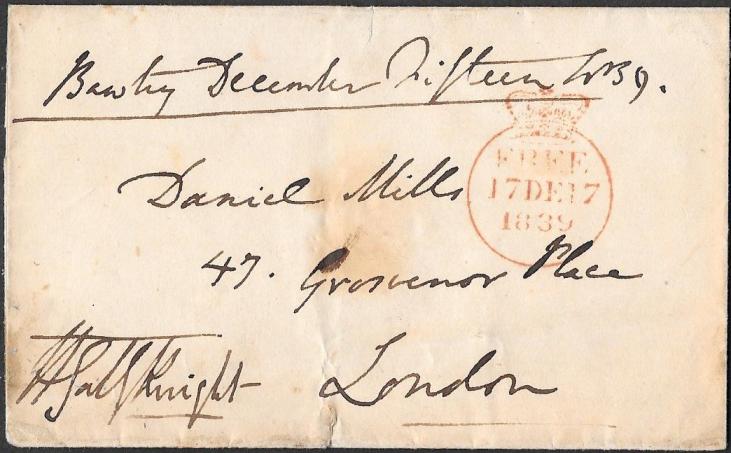 Bawtry December Fifteen 1839.
FREE
17DE17
1839
Daniel Mills
47. Grosvenor Place
London
H Gally Knight